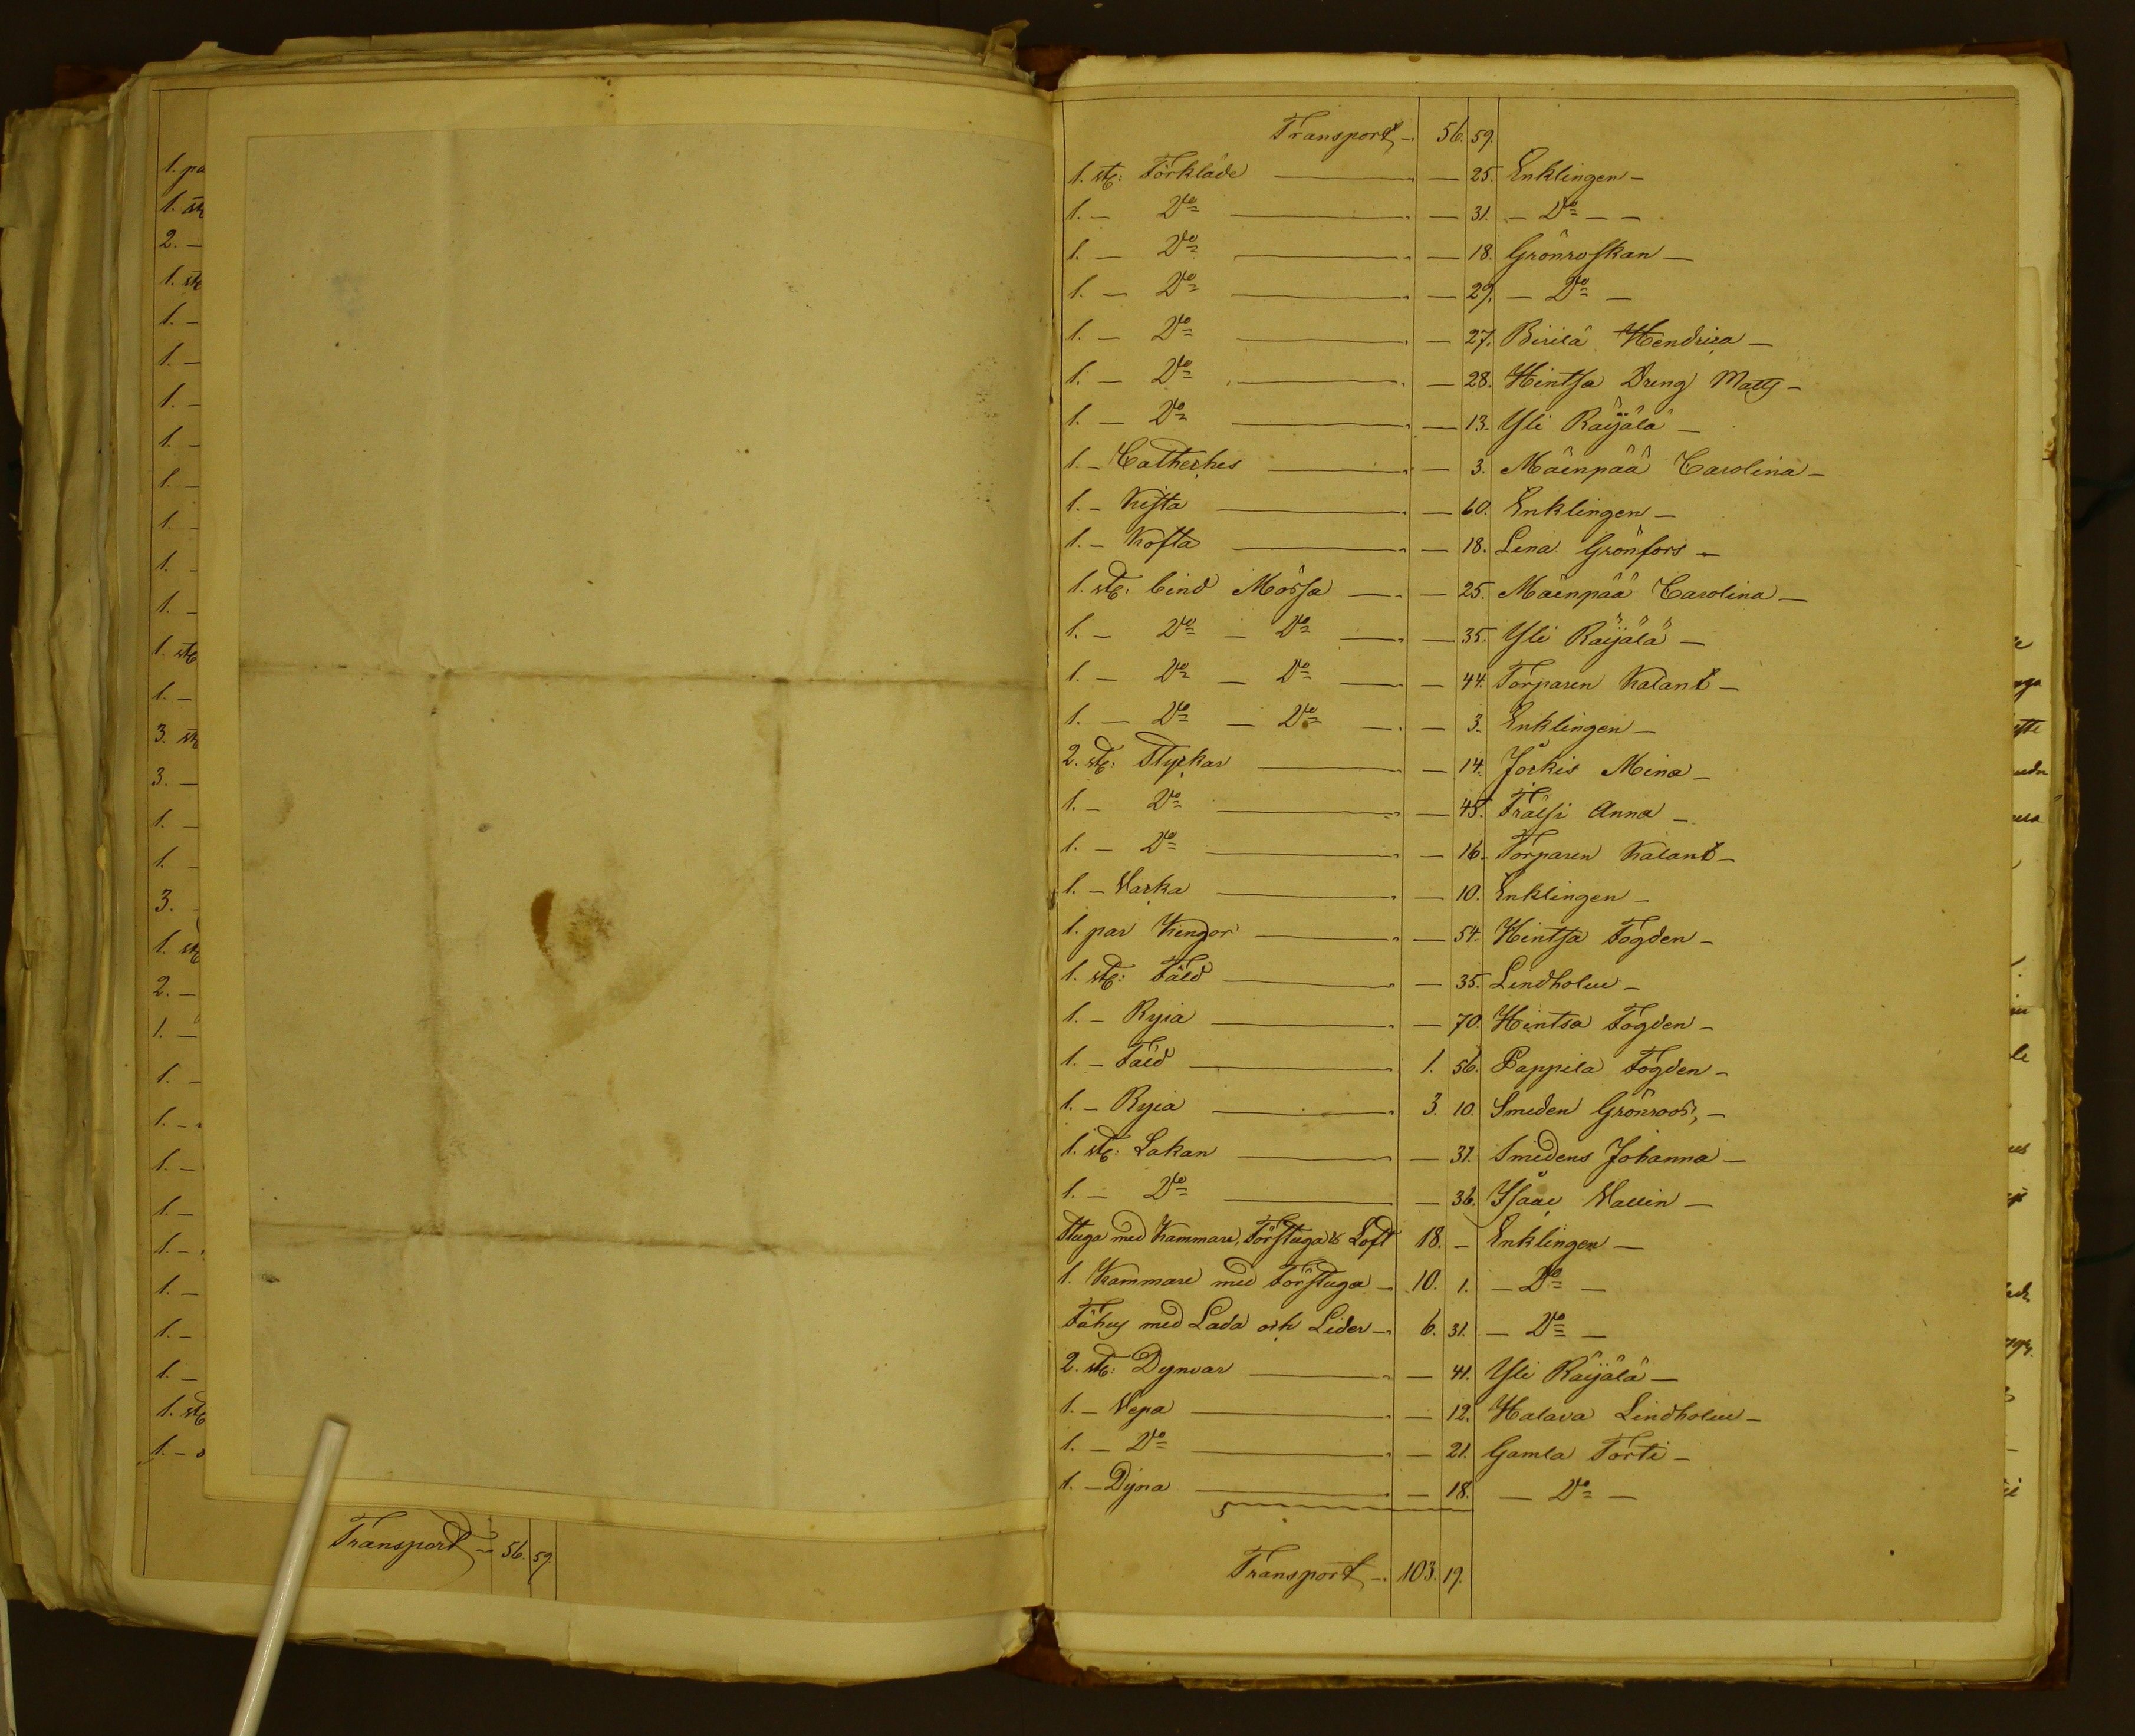 1. pa
1. st
2. –
1. st
1. –
1. –
1. –
1. –
1. –
1. –
1. –
1. –
1. st
1. –
3. st
3. –
1. –
1. –
3. –
1. st
2. –
1. –
1. –
1. –
1. –
1. –
1. –
1. –
1. –
1. –
1. st
1. –
Transport – 56. 59.
Transport – 56. 59.
1. st: Förkläde — 25. Enklingen –
1. – Do — 31. – Do – –
1. – Do — 18. Grönroskan –
1. – Do — 29. – Do –
1. – Do — 27. Birilä Hendrica –
1. – Do — 28. Hintsa Dreng Matts –
1. – Do — 13. Yli Räijälä –
1. – — 3. Mäenpää Carolina –
1. – Kista — 60. Enklingen –
1. – Kofta — 18. Lena Grönfors –
1. st: bind Mössa — 25. Mäenpää Carolina –
1. – Do – Do — 35. Yli Räijälä –
1. – Do – Do — 44. Torparen Kalant –
1. – Do – Do — 3. Enklingen –
2. st: Styckar — 14. Jockis Mina –
1. – Do — 45. Frälsi Anna –
1. – Do — 16. Torparen Kalant –
1. – Varka — 10. Enklingen –
1. par Kengor — 54. Hintsa Fogden –
1. st: Fäld — 35. Lindholm –
1. – Ryia — 70. Hintsa Fogden –
1. – Fäld — 1. 56. Pappila Fogden –
1. – Ryia — 3. 10. Smeden Grönroos, –
1. st: Lakan — 31. Smedens Johanna –
1. – Do — 36. Isaac Wallin –
Stuga med Kammare, Förstuga & Loft 18. – Enklingen –
1. Kammare med Förstuga – 10. 1. – Do –
Fähus med Lada och Lider – 6. 31. – Do –
2. st: Dynvar — 41. Yli Räijälä –
1. – Vepa — 12. Halava Lindholm –
1. – Do — 21. Gamla Torti –
1. – Dyna — 18. – Do –
Transport – 103. 19.